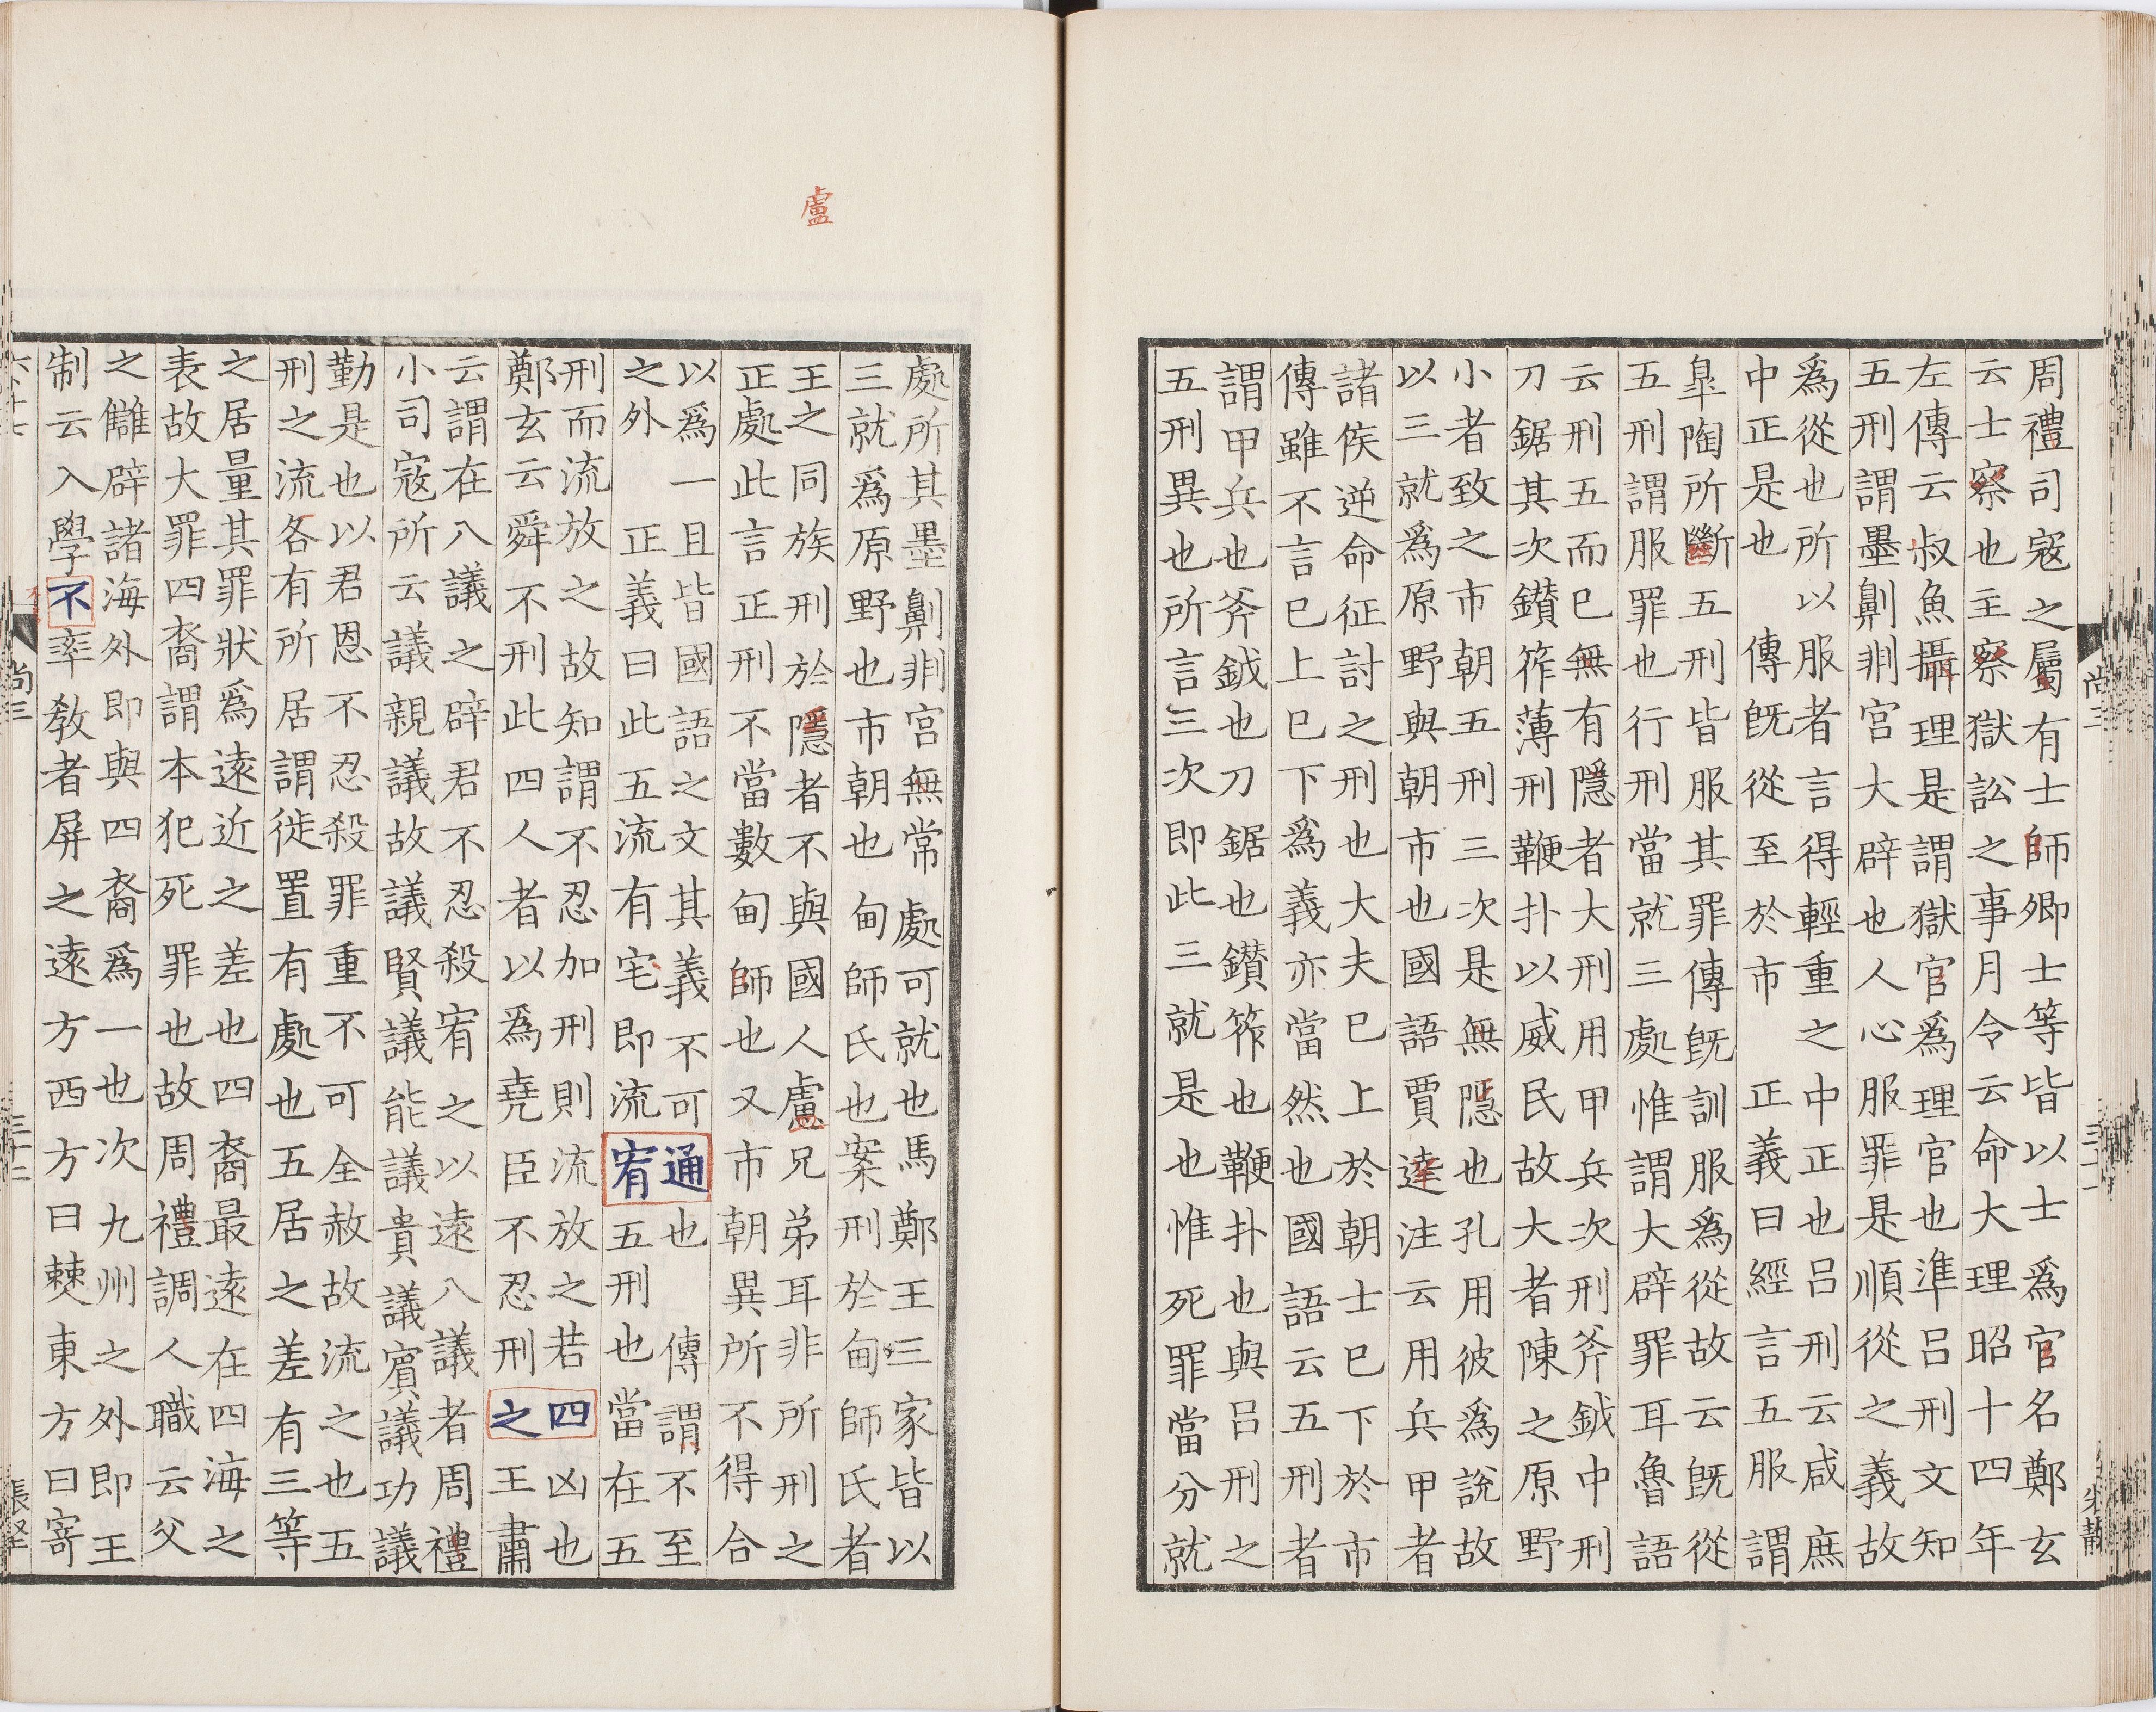 周禮司寇之屬有士師卿士等皆以士爲官名鄭玄
云士察也主察獄訟之事月令云命大理昭十四年
左傳云叔魚攝理是謂獄官爲理官也準呂刑文知
五刑謂墨劓剕宮大辟也人心服罪是順從之義故
爲從也所以服者言得輕重之中正也呂刑云咸庶
中正是也　傳旣從至於市　正義曰經言五服謂
臯陶所斷五刑皆服其罪傳旣訓服爲從故云旣從
五刑謂服罪也行刑當就三處惟謂大辟罪耳魯語
云刑五而已無有隱者大刑用甲兵次刑斧鉞中刑
刀鋸其次鑚笮薄刑鞭扑以威民故大者陳之原野
小者致之市朝五刑三次是無隱也孔用彼爲說故
以三就爲原野與朝市也國語賈逵注云用兵甲者
諸侯逆命征討之刑也大夫已上於朝士已下於市
傳雖不言已上已下爲義亦當然也國語云五刑者
謂甲兵也斧鉞也刀鋸也鑚笮也鞭扑也與呂刑之
五刑異也所言三次即此三就是也惟死罪當分就
尚三
三十一
處所其墨劓剕宮無常處可就也馬鄭王三家皆以
三就爲原野也市朝也甸師氏也案刑於甸師氏者
王之同族刑於隱者不與國人慮兄弟耳非所刑之
正處此言正刑不當數甸師也又市朝異所不得合
以爲一且皆國語之文其義不可通也　傳謂不至
之外　正義曰此五流有宅即流宥五刑也當在五
刑而流放之故知謂不忍加刑則流放之若四凶也
鄭玄云舜不刑此四人者以爲堯臣不忍刑之王肅
云謂在八議之辟君不忍殺宥之以遠八議者周禮
小司寇所云議親議故議賢議能議貴議賓議功議
勤是也以君恩不忍殺罪重不可全赦故流之也五
刑之流各有所居謂徙置有處也五居之差有三等
之居量其罪狀爲遠近之差也四裔最遠在四海之
表故大罪四裔謂本犯死罪也故周禮調人職云父
之讎辟諸海外即與四裔爲一也次九州之外即王
制云入學不率教者屏之遠方西方曰棘東方曰寄
六十七
尚三
三十二
盧